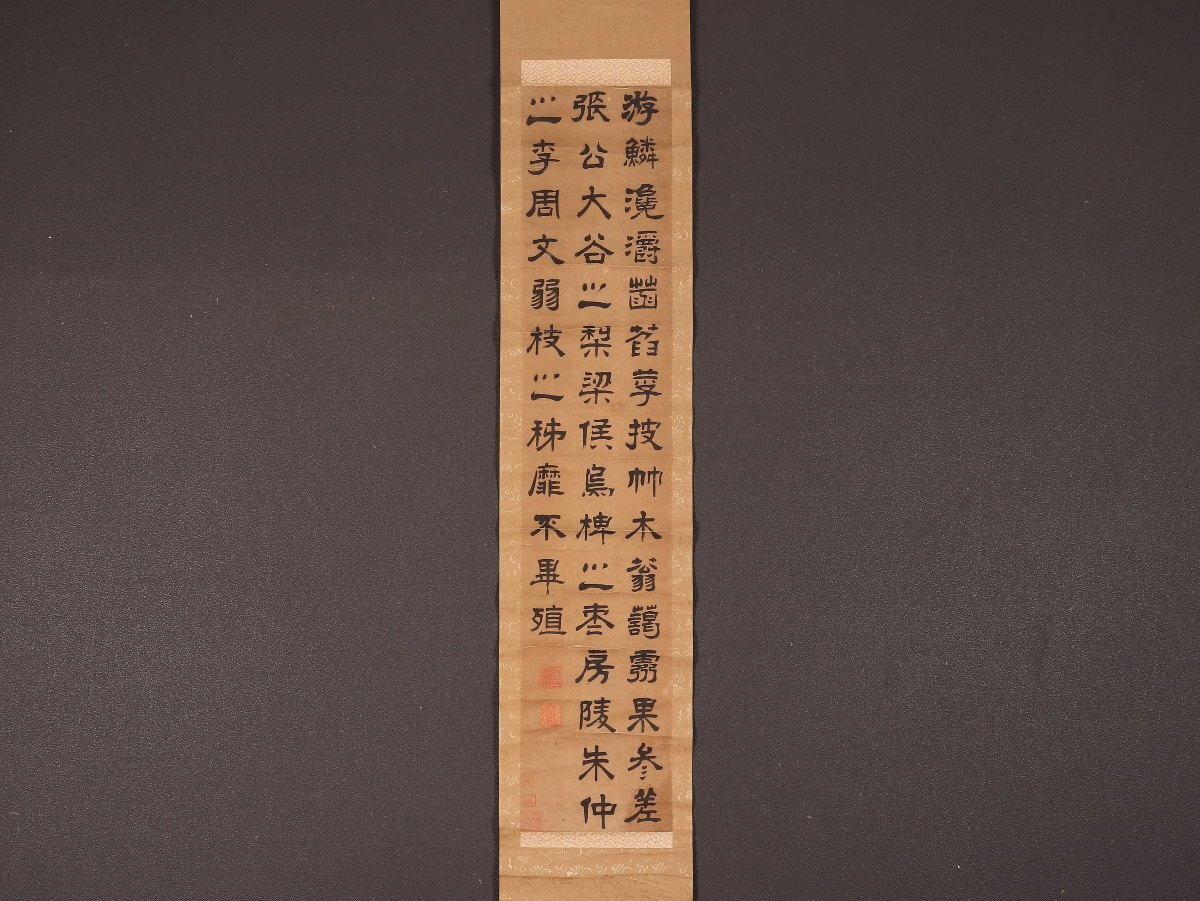 游鱗瀺灂菡萏荂披竹木蓊藹靈果參差
張公大谷之梨梁侯烏椑之棗房陵朱仲
之李周文弱枝之柹靡不畢殖